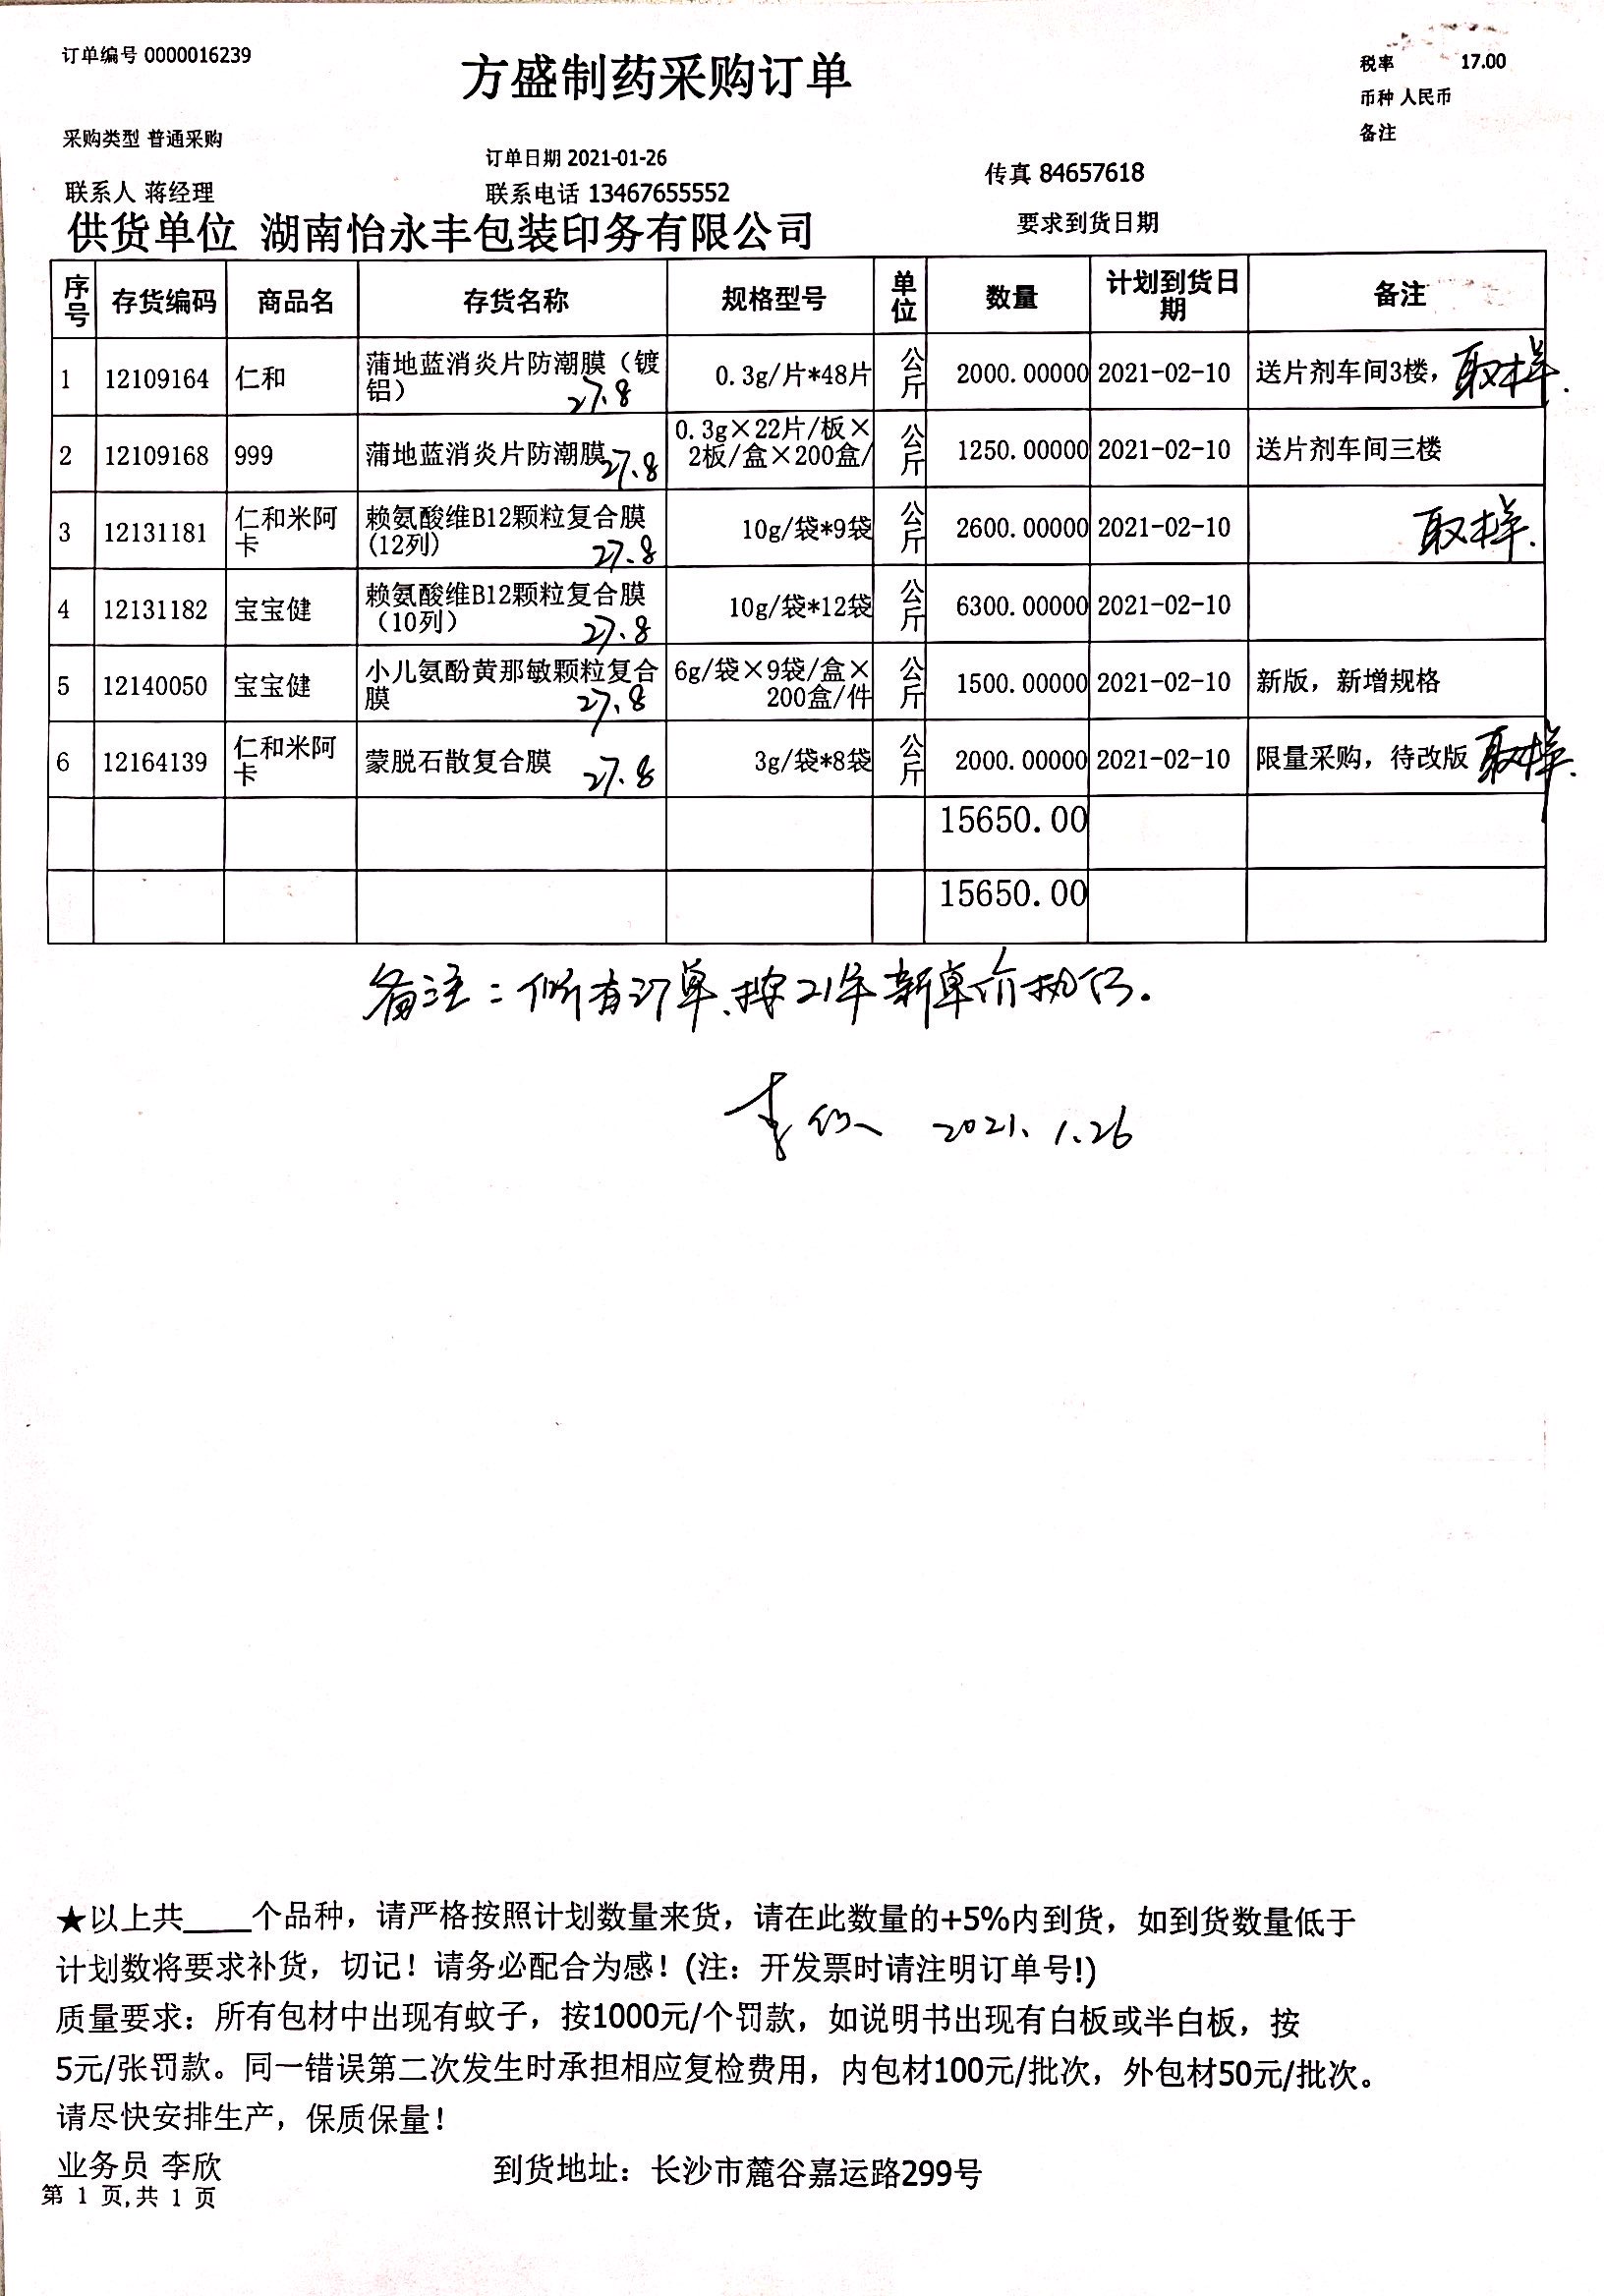 订单编号 0000016239
方盛制药采购订单
税率 17.00
币种 人民币
备注
采购类型 普通采购
订单日期 2021-01-26
传真 84657618
联系人 蒋经理
联系电话 13467655552
要求到货日期
供货单位 湖南怡永丰包装印务有限公司
序号 存货编码 商品名 存货名称 规格型号 单位 数量 计划到货日期 备注
1 12109164 仁和 蒲地蓝消炎片防潮膜（镀铝） 27.8 0.3g/片*48片 公斤 2000.00000 2021-02-10 送片剂车间3楼， 取样.
2 12109168 999 蒲地蓝消炎片防潮膜 27.8 0.3g×22片/板×2板/盒×200盒/ 公斤 1250.00000 2021-02-10 送片剂车间三楼
3 12131181 仁和米阿卡 赖氨酸维B12颗粒复合膜(12列) 27.8 10g/袋*9袋 公斤 2600.00000 2021-02-10 取样.
4 12131182 宝宝健 赖氨酸维B12颗粒复合膜（10列） 27.8 10g/袋*12袋 公斤 6300.00000 2021-02-10
5 12140050 宝宝健 小儿氨酚黄那敏颗粒复合膜 27.8 6g/袋×9袋/盒×200盒/件 公斤 1500.00000 2021-02-10 新版，新增规格
6 12164139 仁和米阿卡 蒙脱石散复合膜 27.8 3g/袋*8袋 公斤 2000.00000 2021-02-10 限量采购，待改版 取样.
15650.00
15650.00
备注：所有订单、按21年新单价执行.
李欣 2021.1.26
★以上共____个品种，请严格按照计划数量来货，请在此数量的+5%内到货，如到货数量低于
计划数将要求补货，切记！请务必配合为感！(注：开发票时请注明订单号!)
质量要求：所有包材中出现有蚊子，按1000元/个罚款，如说明书出现有白板或半白板，按
5元/张罚款。同一错误第二次发生时承担相应复检费用，内包材100元/批次，外包材50元/批次。
请尽快安排生产，保质保量！
业务员 李欣
到货地址：长沙市麓谷嘉运路299号
第 1 页,共 1 页